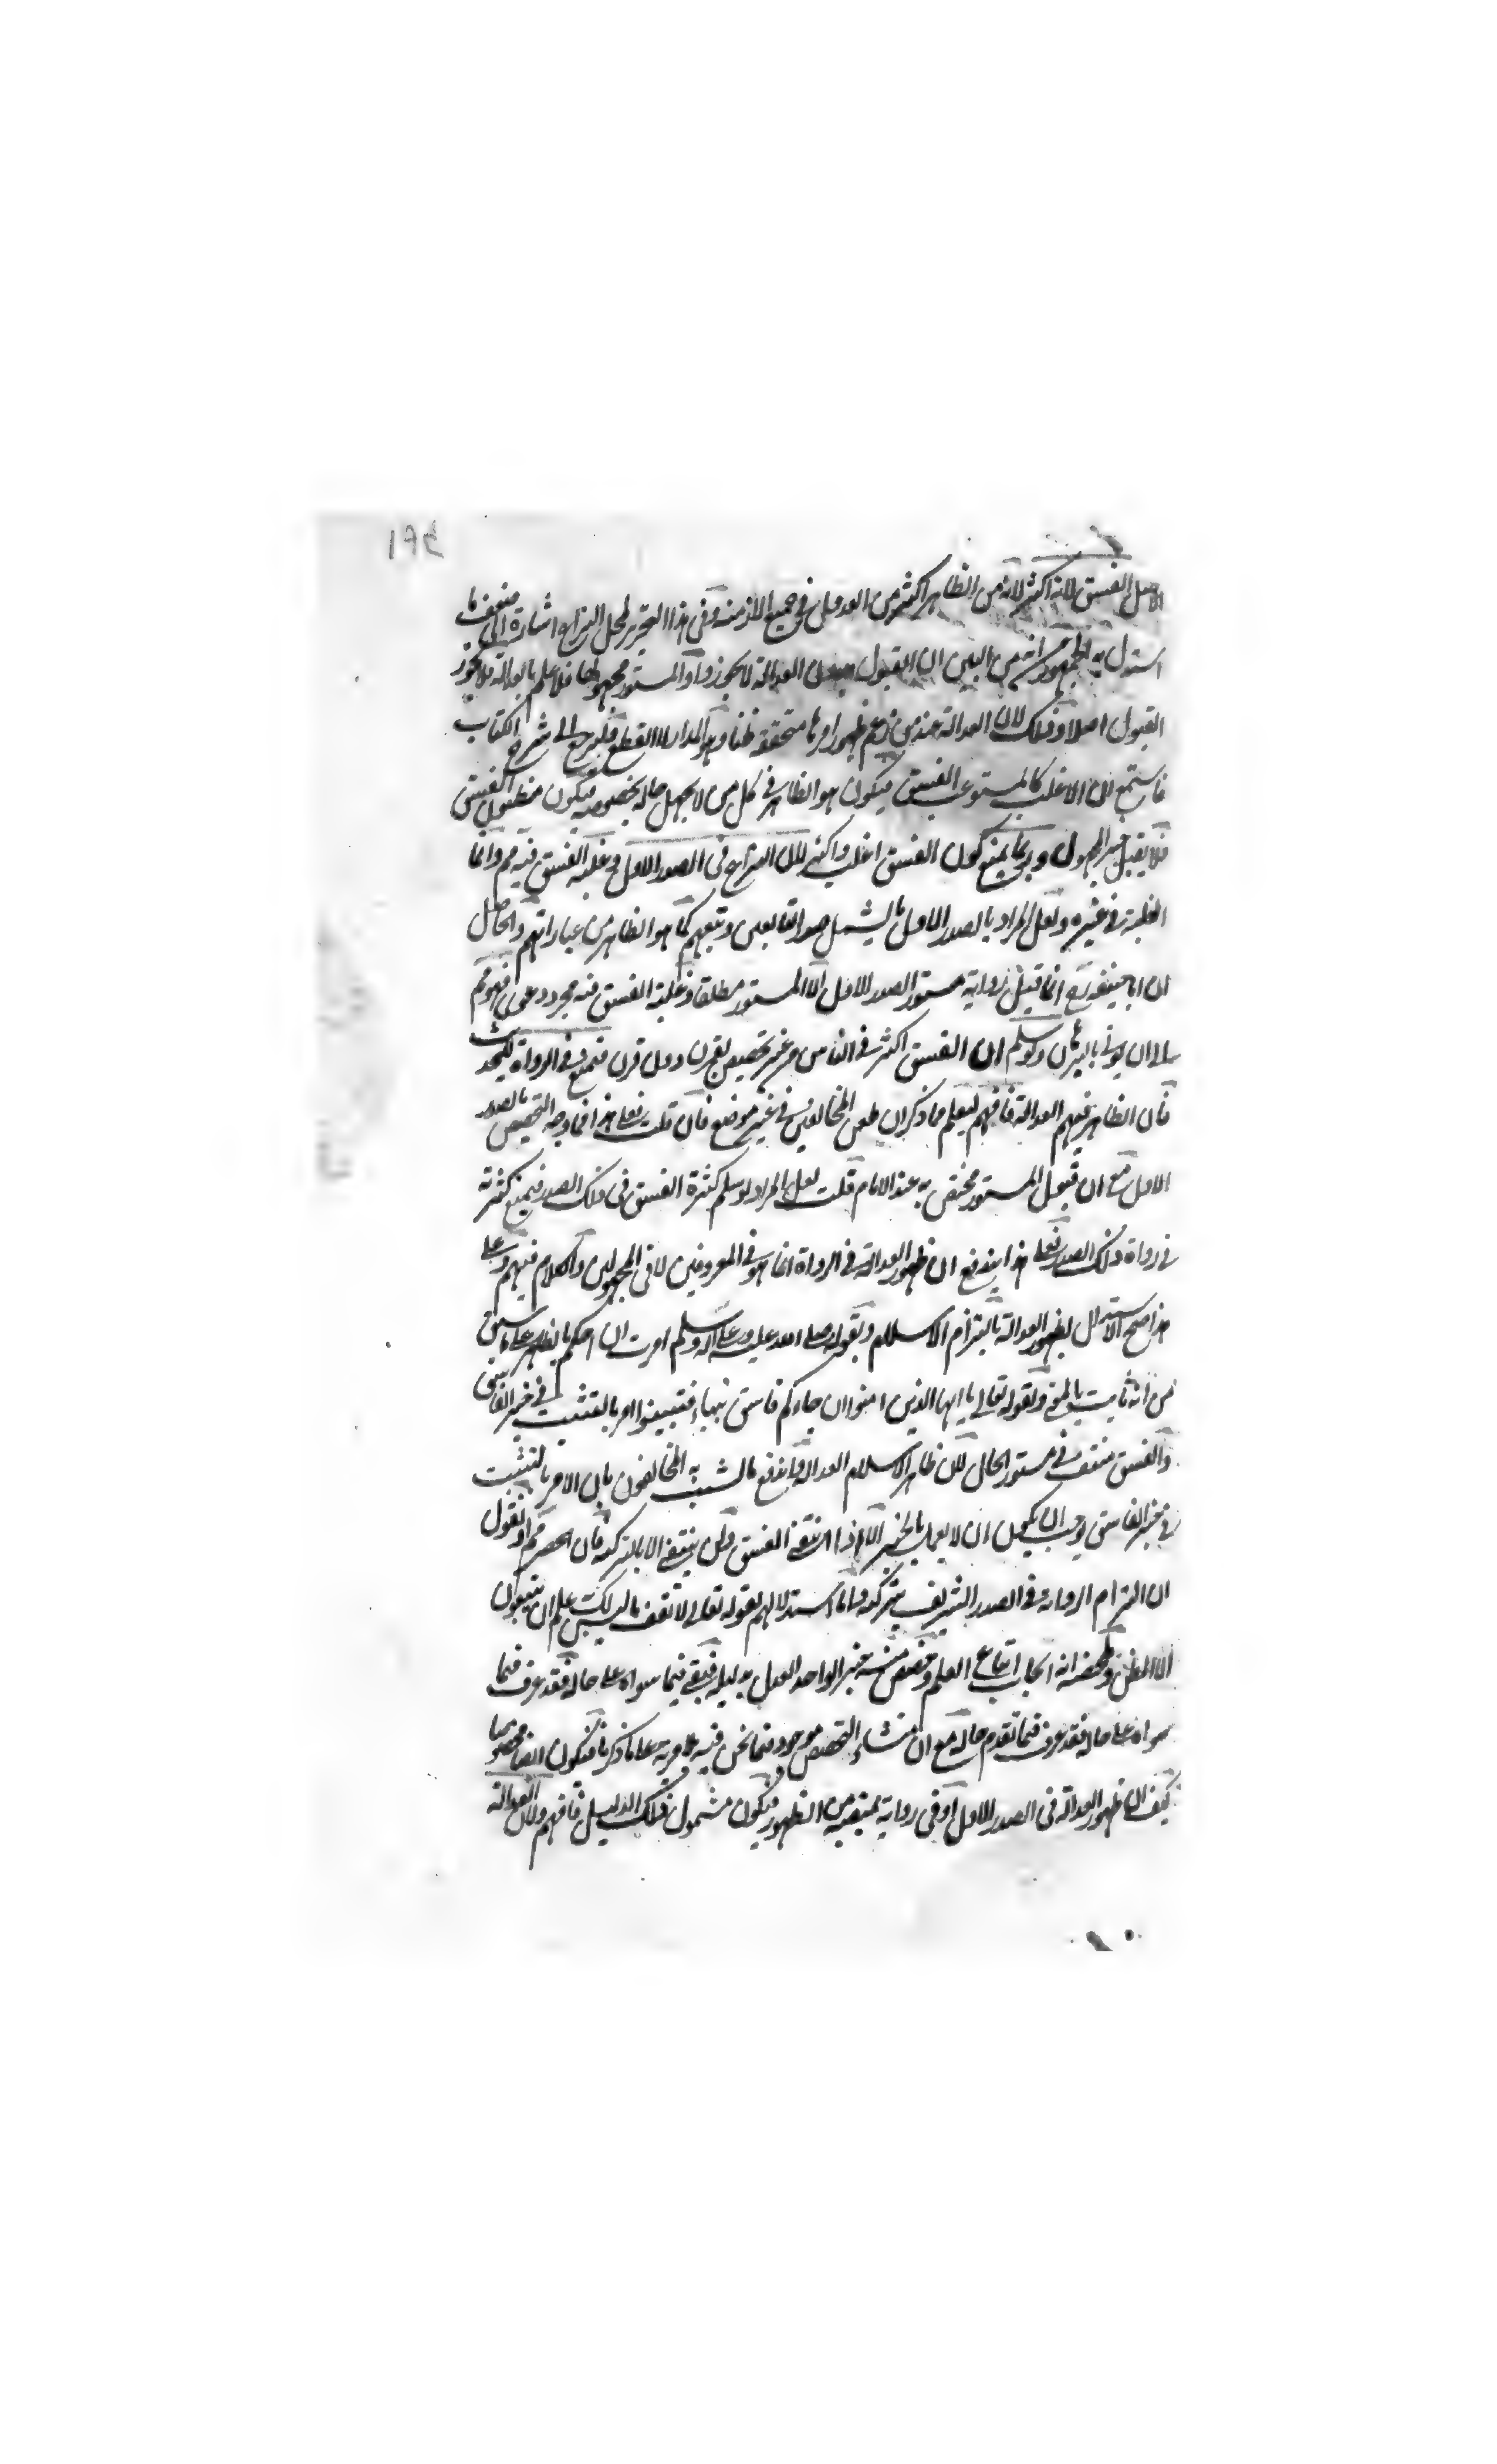 الاصل الفسق لانه اكثر لانه من الظاهر اكثر من العدول في جميع الازمنه وفى هذا التحرير لمحل النزاع اشارة الى ضعف ما
استدل به الجمهور من انه من البين ان القبول العدالة لا يجوز والمستور مجهولها فلا علم بالعدالة فلا يجوز
القبول اصلا وذلك لان العدالة عند من زعم ظهور امرها متحققه ظنا وهو المدار لا القطع فليرجع الى شرح الكتاب
فاستمع ان الاغلب الفسق فيكون هو الظاهر في كل من لا يجهل حاله بخصوصه فيكون مظنون الفسق
فلا يقبل خبر المجهول وربما يمنع كون الفسق اغلب واكثر لان النزاع فى الصدر الاول وغلبة الفسق فيه مم وانما
الغلبة في غيره ولعل المراد بالصدر الاول ما يشمل التابعين وتبعهم كما هو الظاهر من عباراتهم والحاصل
ان ابا حنيفه رح انما قبل رواية مستور الصدر الاول لا المستور مطلقا وغلبة الفسق فيه مجرد دعوى فهو مم
الى ان يؤتى بالبرهان ولو سلم ان الفسق اكثر في الناس من غير تخصيص بقرن دون قرن فيمنع فى الرواة للحديث
فان الظاهر فيهم العدالة فافهم ليعلم مما ذكر ان طعن المخالفين فى غير موضع فان قلت فعلى هذا فما وجه التخصيص بالصدر
الاول مع ان قبول المستور مختص به عند الامام قلت لعل المراد لو سلم كثرة الفسق فى ذلك الصدر فيمنع كثرته
في رواة ذلك الصدر فعلى هذا يندفع ان ظهور العدالة في الرواة انما هو فى المعروفين لا فى المجهولين والكلام فيهم وعلى
هذا صح الاستدلال بظهور العدالة بالتزام الاسلام وبقوله صلى الله عليه وعلى اله وسلم امرت ان احكم بالظاهر على ما سبق
من انه ثابت بالمعنى وبقوله تعالى يا ايها الذين امنوا ان جاءكم فاسق بنباء فتبينوا امر بالتثبت فى خبر الفاسق
والفسق منتف فى مستور الحال لان ظاهر الاسلام العدالة واندفع ما تشبث به المخالفون بان الامر بالتثبت
فى خبر الفاسق يوجب ان يكون ان لا يعمل بالخبر الا اذا انتفى الفسق ولن ينتفى الا بالتزكية فان الحصر مم او نقول
ان التزام الرواية فى الصدر الشريف تزكية واما استدلالهم بقوله تعالى لا تقف ما ليس لك به علم ان يتبعون
الا الظن وملخصه انه ايجاب اتباع العلم وخصص منه خبر الواحد العدل بدليله فبقى فيما سواه على حاله فقد عرف فيما
سواه على حاله فقد عرف فيما تقدم حاله مع ان منشاء التخصيص موجود فيما نحن فيه على ما ذكرنا فيكون ايضا مخصوصا
كيف لا وظهور العدالة فى الصدر الاول او فى رواية من الظهور فيكون مشمول ذلك الدليل فافهم ولان العدالة